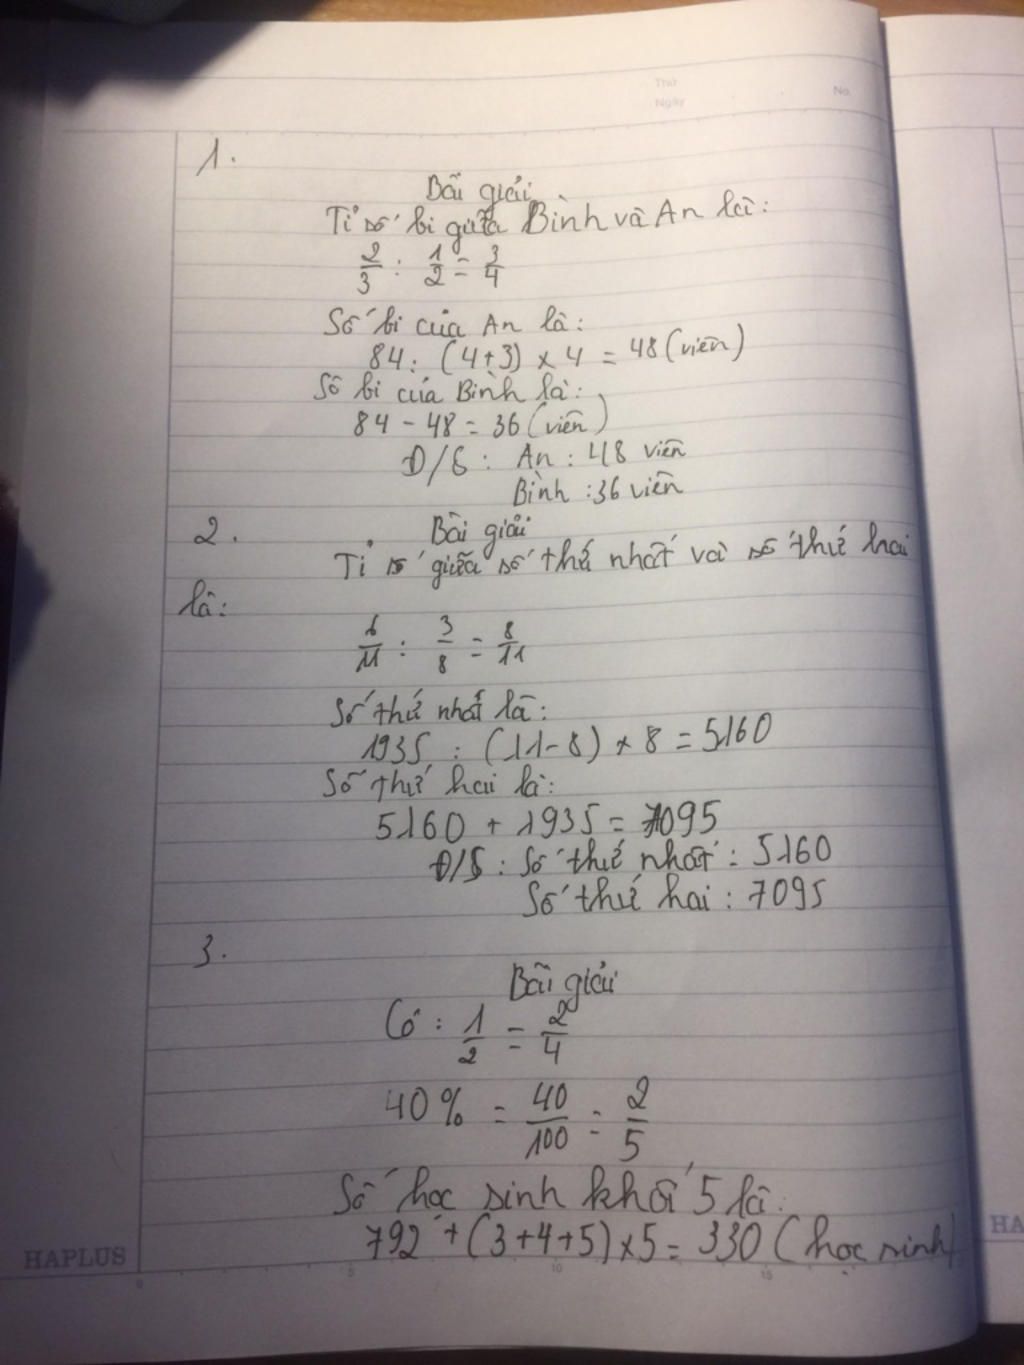 Thứ
Ngày
No.
1.
Bài giải
Tỉ số bi giữa Bình và An là:
2/3 : 1/2 = 3/4
Số bi của An là:
84 : (4+3) x 4 = 48 (viên)
Số bi của Bình là:
84 - 48 = 36 (viên)
Đ/S : An : 48 viên
Bình : 36 viên
2.
Bài giải
Tỉ số giữa số thứ nhất và số thứ hai
là:
6/11 : 3/8 = 8/11
Số thứ nhất là:
1935 : (11-8) x 8 = 5160
Số thứ hai là:
5160 + 1935 = 7095
Đ/S : Số thứ nhất : 5160
Số thứ hai : 7095
3.
Bài giải
Có : 1/2 = 2/4
40% = 40/100 = 2/5
Số học sinh khối 5 là:
792 + (3+4+5) x 5 = 330 (học sinh)
HAPLUS
0 5 10 15
HA